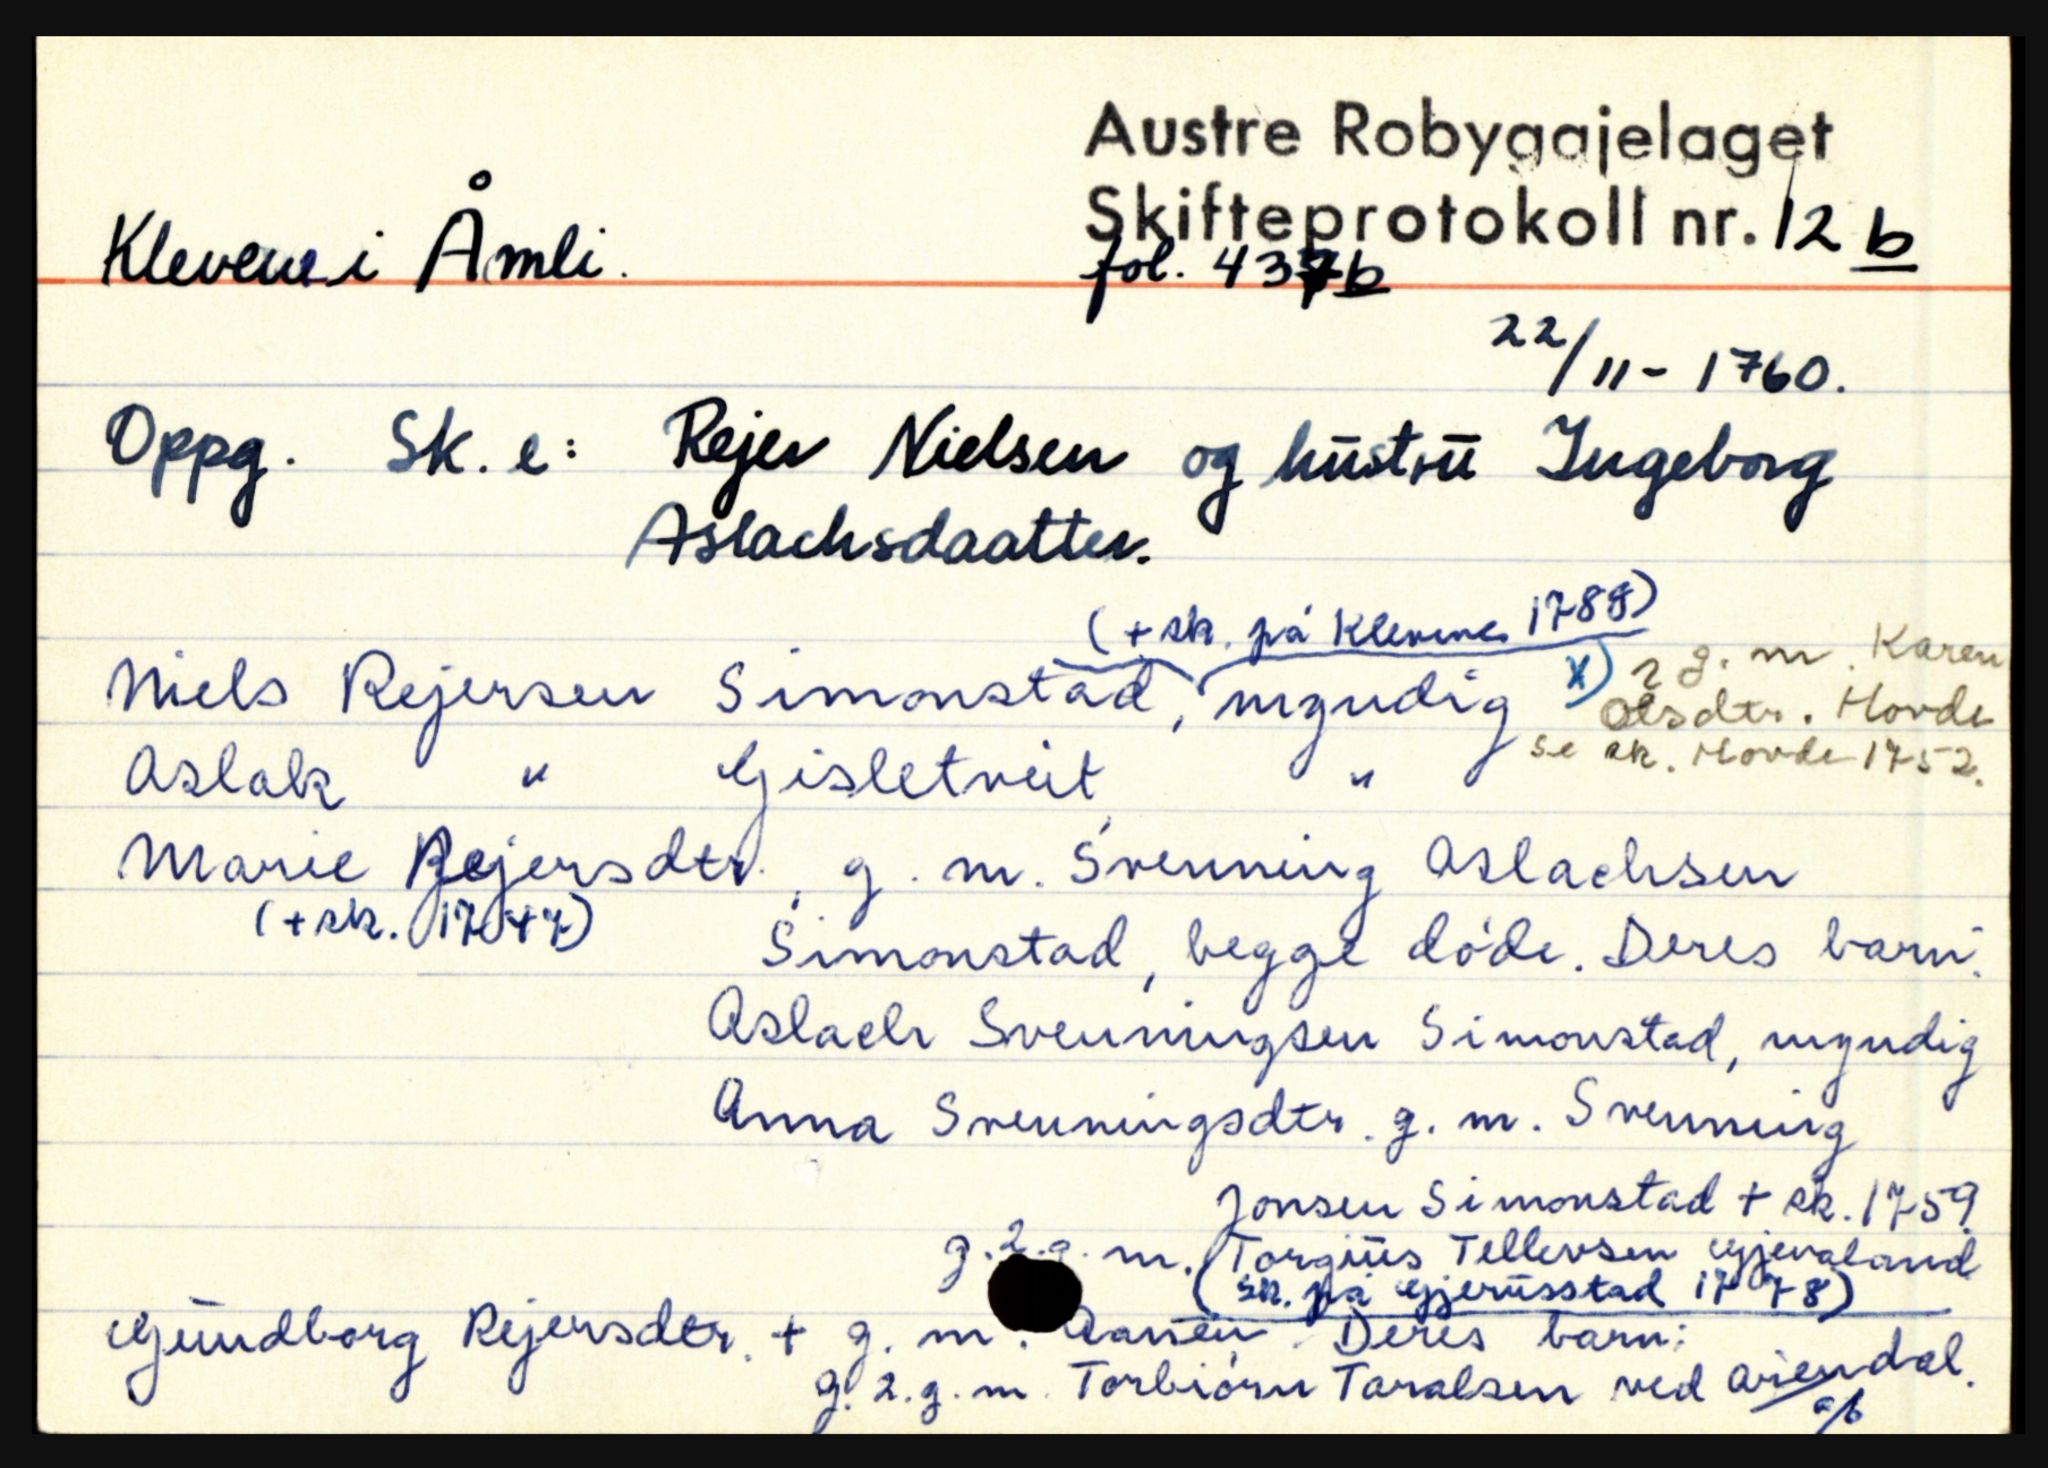 Austre Robyggjelaget
Skifteprotokoll nr. 12 b
Klevene i Åmli.
fol. 437b
22/11- 1760.
Oppg. Sk. e: Rejer Nielsen og hustru Ingeborg
Aslachsdaatter.
(+ sk. på Klevene 1788)
Niels Rejersen Simonstad, myndig x) 2 g. m. Karen
Olsdtr. Hovde
se sk. Hovde 1752.
Aslak " Gisletveit "
Marie Rejersdtr., g. m. Svenning Aslachsen
(+ sk. 1747)
Simonstad, begge døde. Deres barn:
Aslach Svenningsen Simonstad, myndig
Anna Svenningsdtr. g. m. Svenning
Jonsen Simonstad + sk. 1759
g. 2. g. m. Torgius Tellevsen Gjevaland
(sk. på Gjerusstad 1778)
Gundborg Rejersdtr. + g. m. Aanen Deres barn:
g. 2. g. m. Torbiørn Taralsen ved Ariendal.
a/b